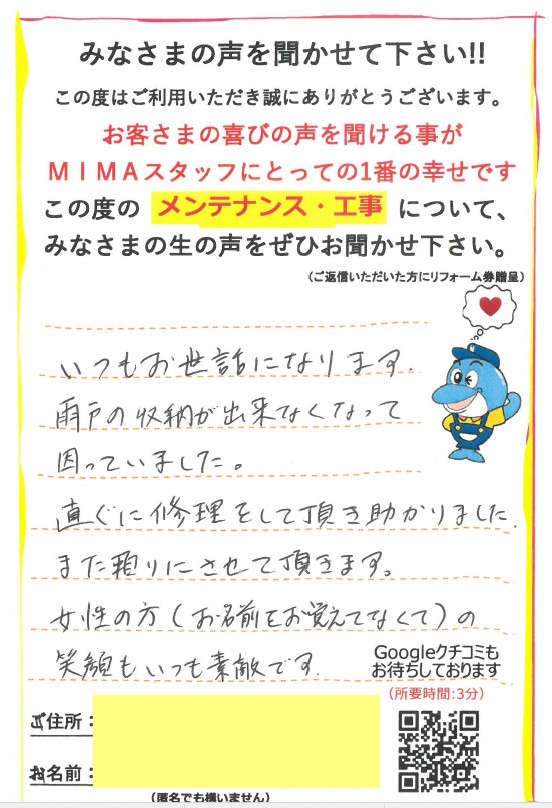 みなさまの声を聞かせて下さい!!
この度はご利用いただき誠にありがとうございます。
お客さまの喜びの声を聞ける事が
MIMAスタッフにとっての1番の幸せです
この度の メンテナンス・工事 について、
みなさまの生の声をぜひお聞かせ下さい。
(ご返信いただいた方にリフォーム券贈呈)
いつもお世話になります.
雨戸の収納が出来なくなって
困っていました。
直ぐに修理をして頂き助かりました.
また頼りにさせて頂きます。
女性の方(お名前をお覚えてなくて)の
笑顔もいつも素敵です.
Googleクチコミも
お待ちしております
(所要時間:3分)
ご住所:
お名前:
(匿名でも構いません)